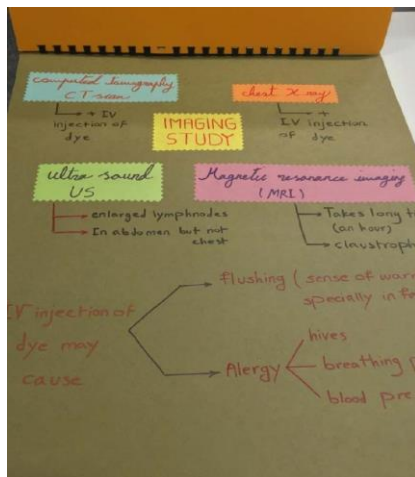 computed tomography
CT scan
+ IV
injection of
dye
chest X ray
+
IV injection
of dye
IMAGING
STUDY
ultra sound
US
enlarged lymphnodes
In abdomen but not
chest
Magnetic resonance imaging
(MRI)
Takes long t
(an hour)
claustroph
IV injection of
dye may
cause
flushing (sense of war
specially in f
Alergy
hives
breathing
blood pre